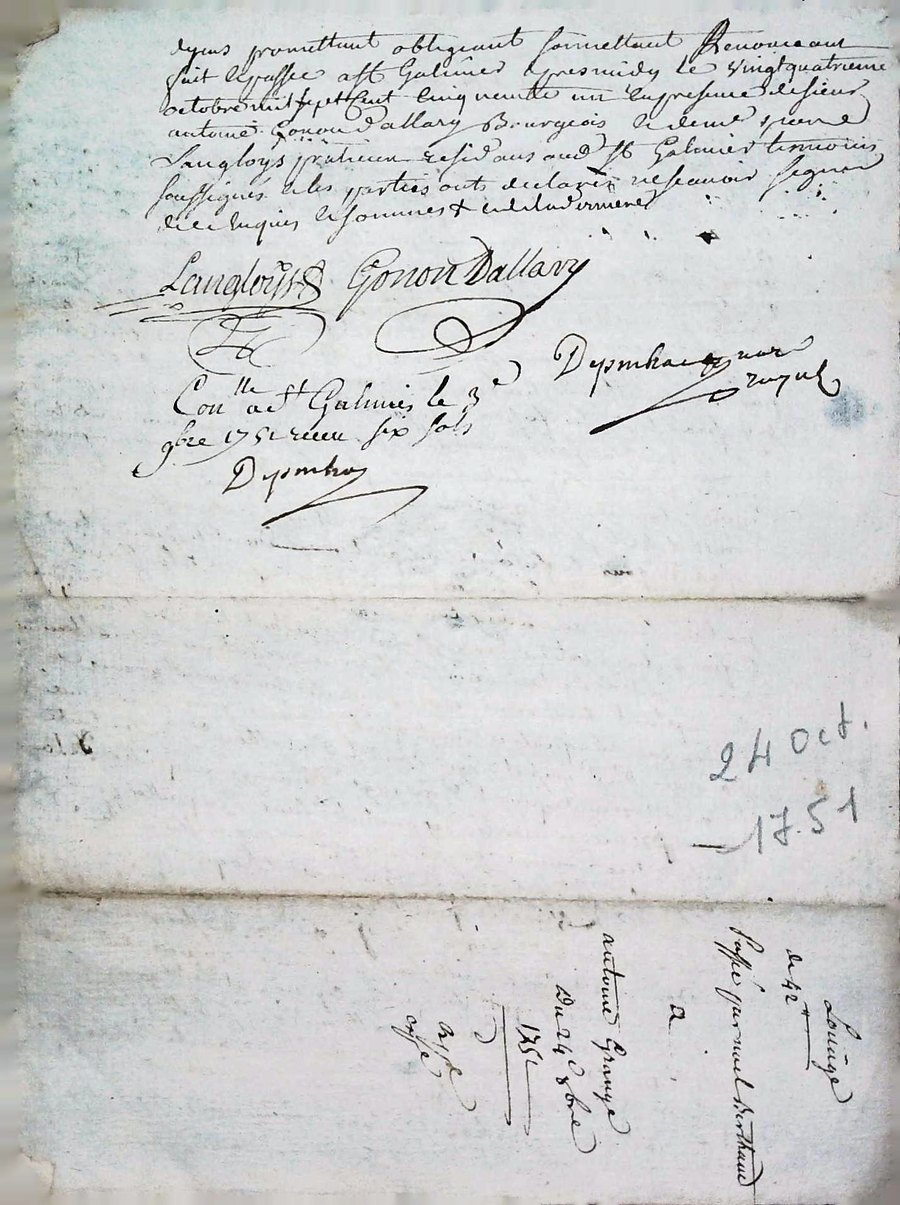 depens promettant obligeant soumettant Renonceant
fait et passé a St Galmier apresmidy le vingtquatrieme
octobre mil sept cent cinquante un en presence de sieur
antoine Gonon dallary Bourgeois et de me pierre
Langloys praticien residans aud St Galmier temoins
soussignés et les parties ont declaré ne scavoir signer
de ce enquis et sommés
Langloys Gonon Dallary
Depmhac nor
royal
Conlle a St Galmier le 3e
9bre 1751 receu six sols
24 Oct.
1751
Louage
de 42
Passé par Berthaud
a
antoine Grange
Du 24e 8bre
1751